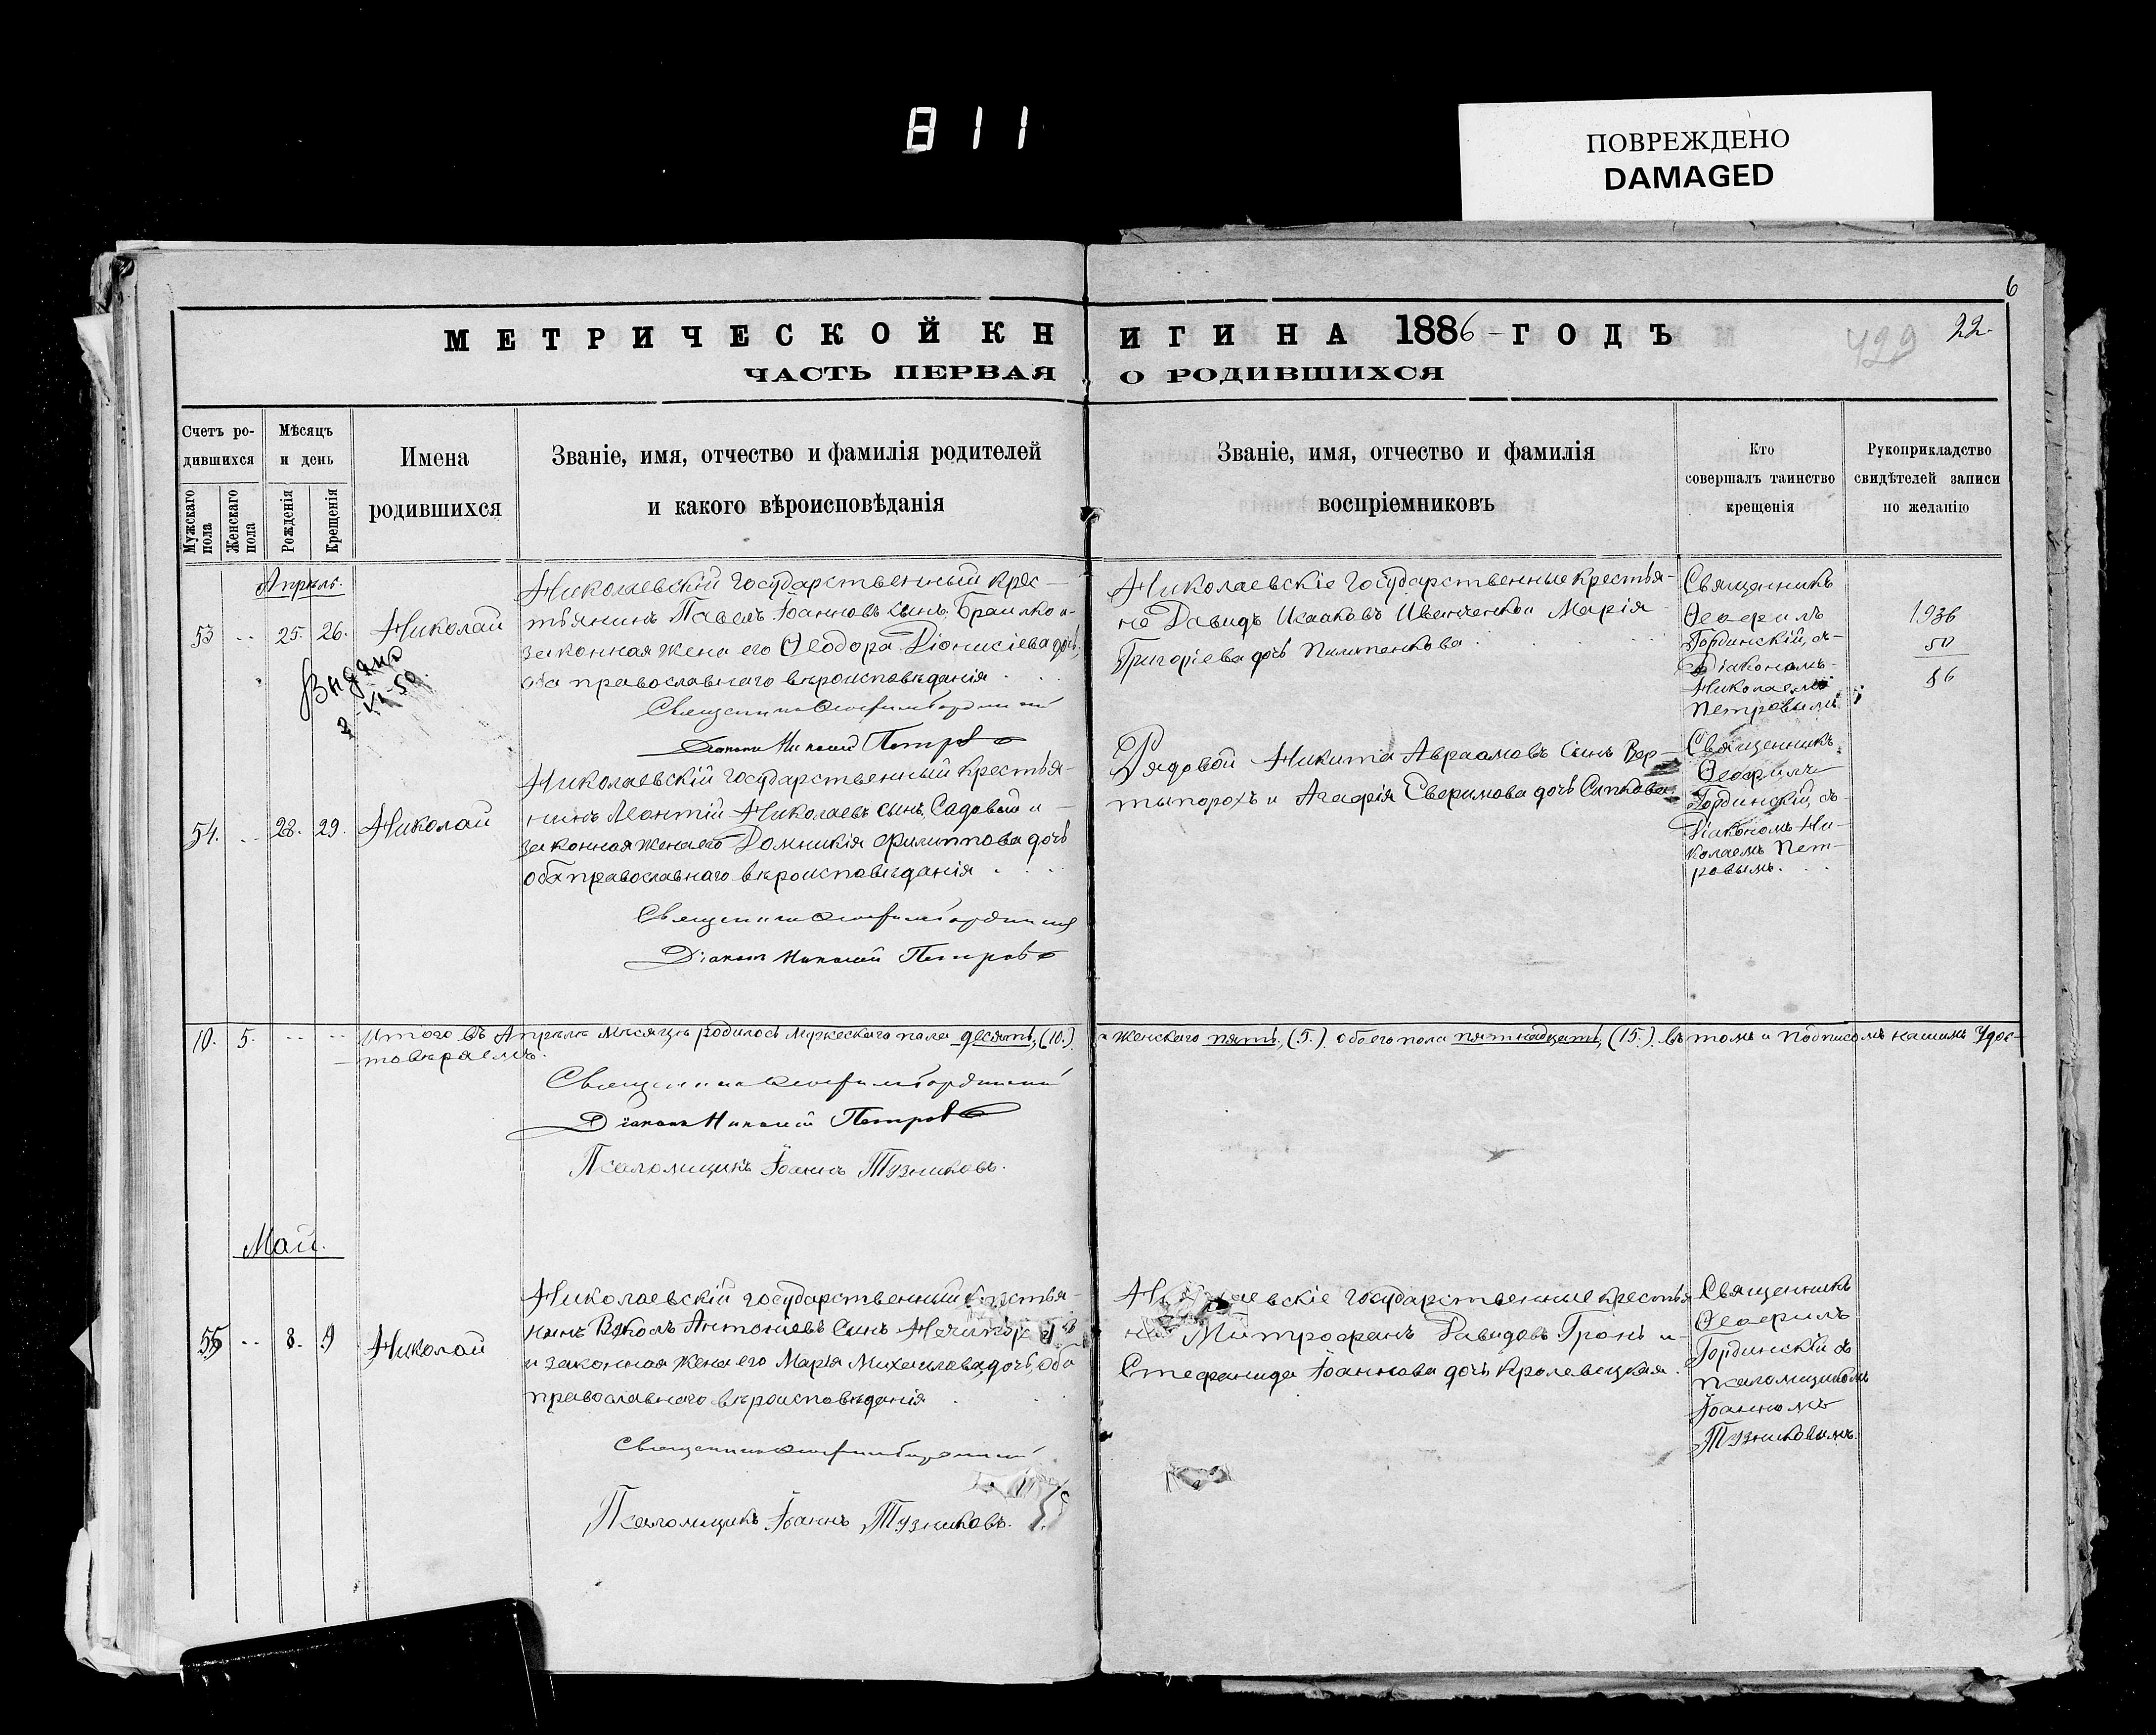 811
ПОВРЕЖДЕНО
DAMAGED
6
МЕТРИЧЕСКОЙ КНИГИ НА 1886 ГОДЪ
429
22.
ЧАСТЬ ПЕРВАЯ О РОДИВШИХСЯ
Счетъ ро-
дившихся
Мужскаго пола
Женскаго пола
Мѣсяцъ
и день
Рожденія
Крещенія
Имена
родившихся
Званіе, имя, отчество и фамилія родителей
и какого вѣроисповѣданія
Званіе, имя, отчество и фамилія
воспріемниковъ
Кто
совершалъ таинство
крещенія
Рукоприкладство
свидѣтелей записи
по желанію
Апрѣль.
53 25. 26. Николай
Выданъ
Николаевскій государственный крес-
тьянинъ Павелъ Іоанновъ сынъ Браилко и
законная жена его Ѳеодора Діонисіева дочь,
оба православнаго вѣроисповѣданія
Діаконъ Николай Петровъ
Николаевскіе государственные крестья-
не Давидъ Исааковъ Иванченко и Марія
Григоріева дочь Пилипенкова
Священникъ
Ѳеофилъ
Гординскій, съ
Діакономъ
Николаемъ
Петровымъ
1936
50
86
54. 28. 29. Николай
Николаевскій государственный крестья-
нинъ Леонтій Николаевъ сынъ Садовый и
законная жена его Домникія Филиппова дочь
оба православнаго вѣроисповѣданія
Діаконъ Николай Петровъ
Рядовой Никита Авраамовъ сынъ Вер-
типорохъ и Агафія Сверимова дочь
Священникъ
Ѳеофилъ
Гординскій, съ
Діакономъ Ни-
колаемъ Пет-
ровымъ.
10. 5. Итого въ Апрѣлѣ мѣсяцѣ родилось мужескаго пола десять, (10.) и женскаго пять, (5.) обоего пола пятнадцать, (15.) въ томъ и подписомъ нашимъ удос-
товѣряемъ.
Діаконъ Николай Петровъ
Псаломщикъ Іоаннъ Тузниковъ.
Май.
55 8. 9 Николай
Николаевскій государственный крестья-
нинъ Антоніевъ сынъ
и законная жена его Марія Михаилова дочь, оба
православнаго вѣроисповѣданія
Псаломщикъ Іоаннъ Тузниковъ.
Николаевскіе государственные крестья
не Митрофанъ Давидовъ Гронь и
Стефанида Іоаннова дочь Кролевецкая.
Священникъ
Ѳеофилъ
Гординскій съ
псаломщикомъ
Іоанномъ
Тузниковымъ.